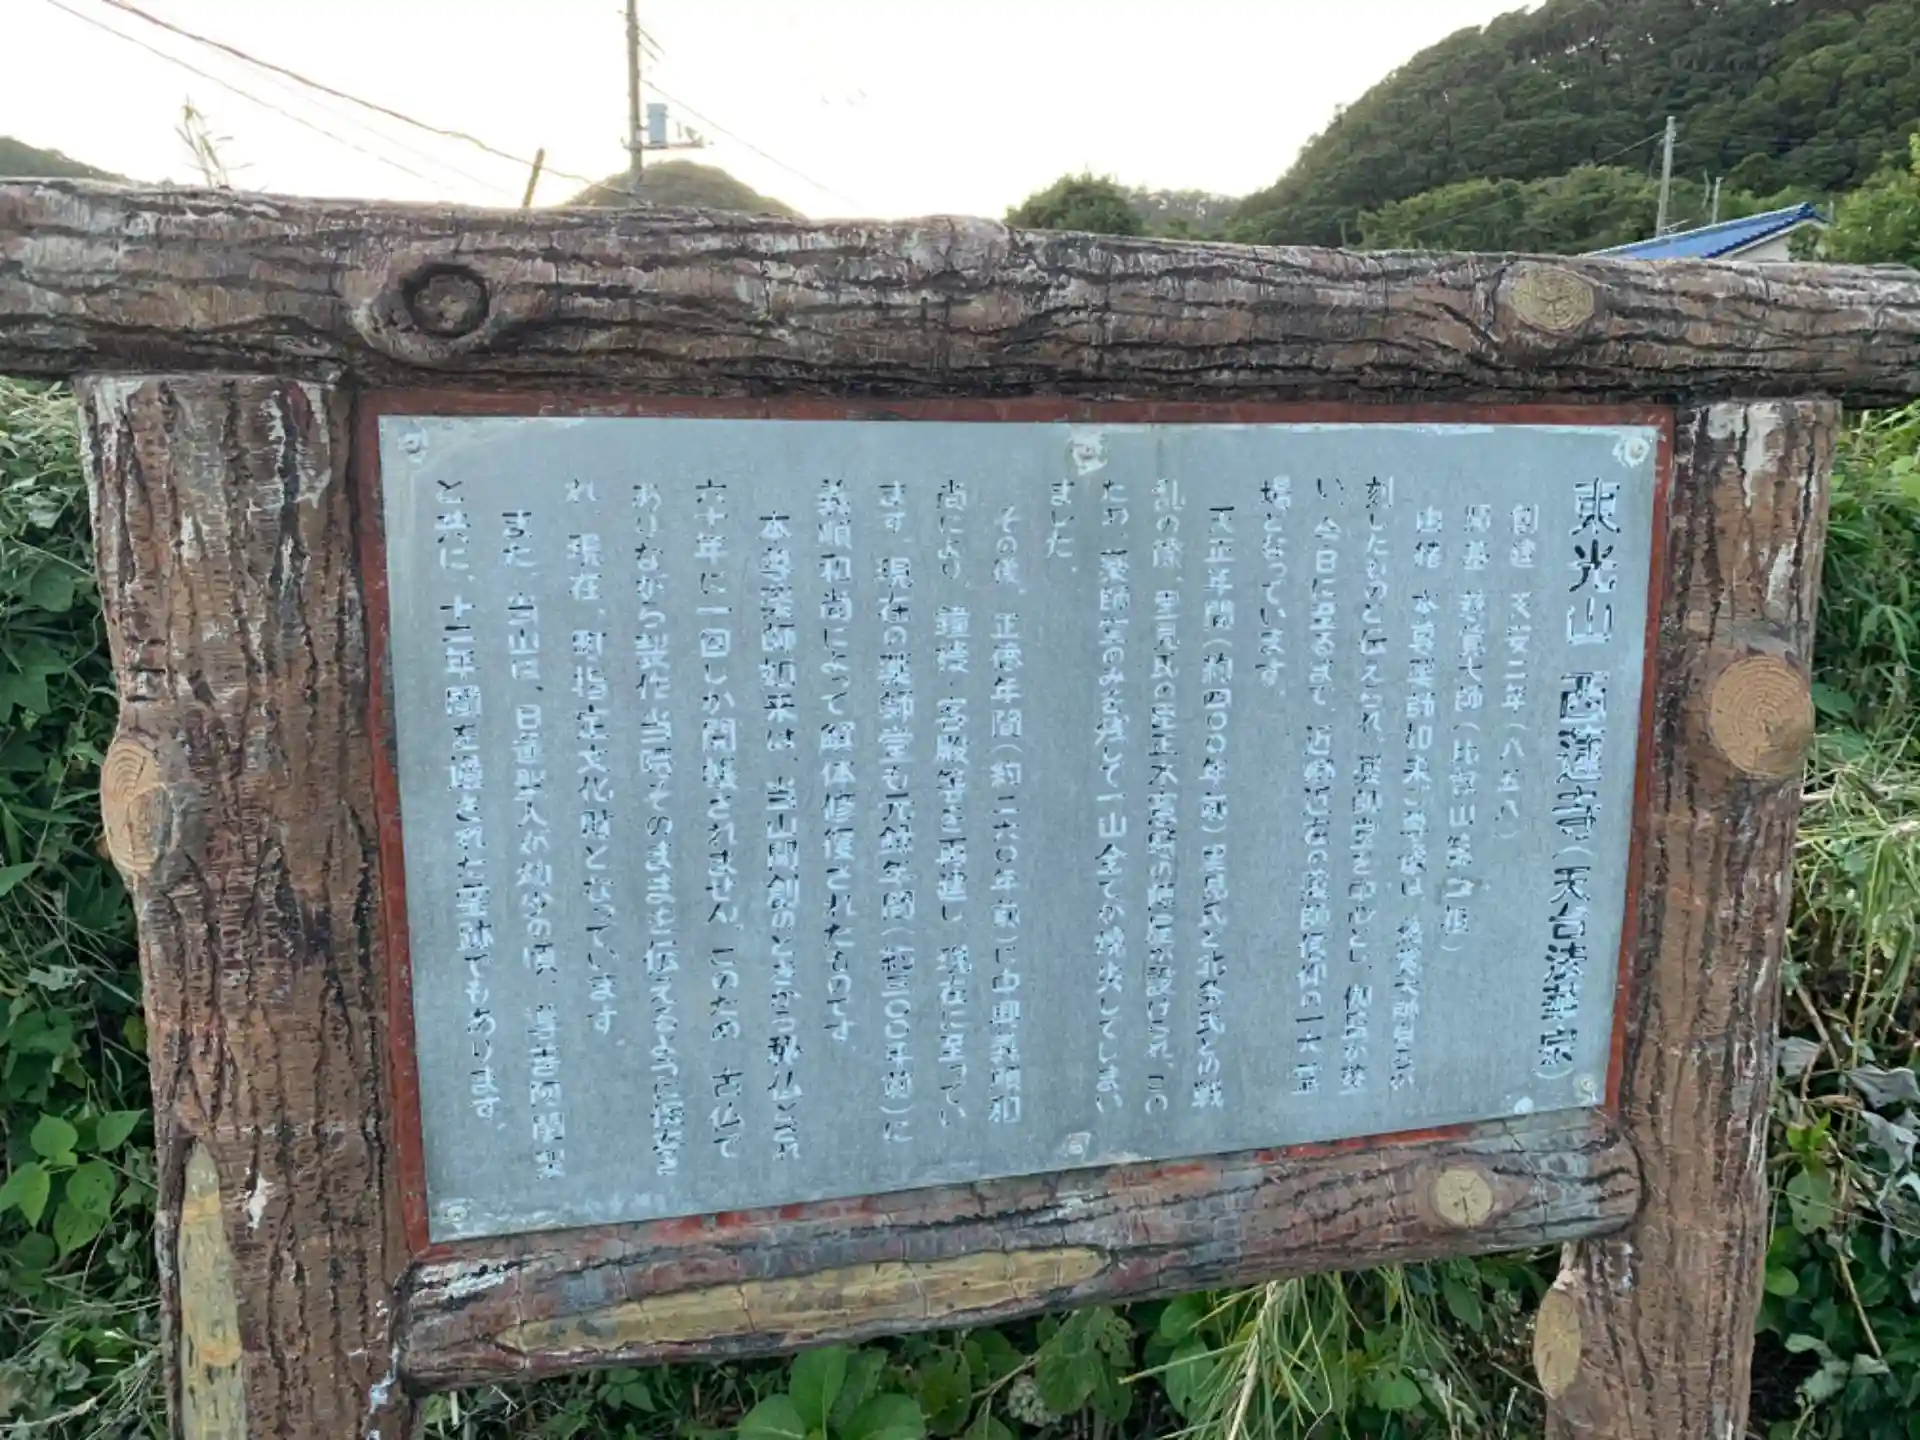 東光山 西蓮寺(天台法華宗)
創建 天安二年(八五八)
開基 慈覚大師(比叡山第
由緒 本尊薬師如来
刻したものと伝えられ、薬師堂を中心とし、伽藍が整
い、今日に至るまで、近郷近在の薬師信仰の一大霊
場となっています。
天正年間(約四〇〇年前)里見氏と北条氏との戦
乱の際、里見氏の
ため、薬師堂のみを残して一山全てが焼失してしまい
ました。
その後、正徳年間(約二六〇年前)に中興義順和
尚により、鐘楼・客殿等を再建し、現在に至ってい
ます。現在の薬師堂も元禄年間(約三〇〇年前)に
義順和尚によって解体修復されたものです
本尊薬師如来は、当山開創のときから秘仏とされ
六十年に一回しか開帳されません。このため、古仏で
ありながら製作当時そのままを伝えるように保存さ
れ、現在、町指定文化財となっています。
また、当山は、日蓮聖人が幼少の頃、道善阿闍梨
と共に、十二年間を過された霊跡でもあります。